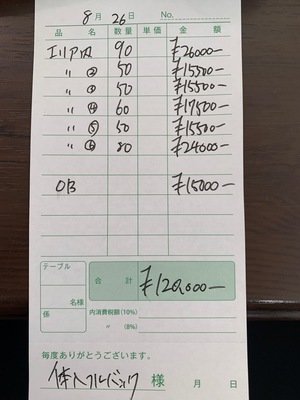 8月26日
品名 数量 単価 金額
エリア内 90 ¥26000-
〃 ② 50 ¥15500-
〃 ③ 50 ¥15500-
〃 ④ 60 ¥17500-
〃 ⑤ 50 ¥15500-
〃 ⑥ 80 ¥24000-
OB ¥15000-
テーブル
名様
係
合計 ¥129,000-
内消費税額(10%)
〃 (8%)
毎度ありがとうございます。
体入フルバック 様 月 日